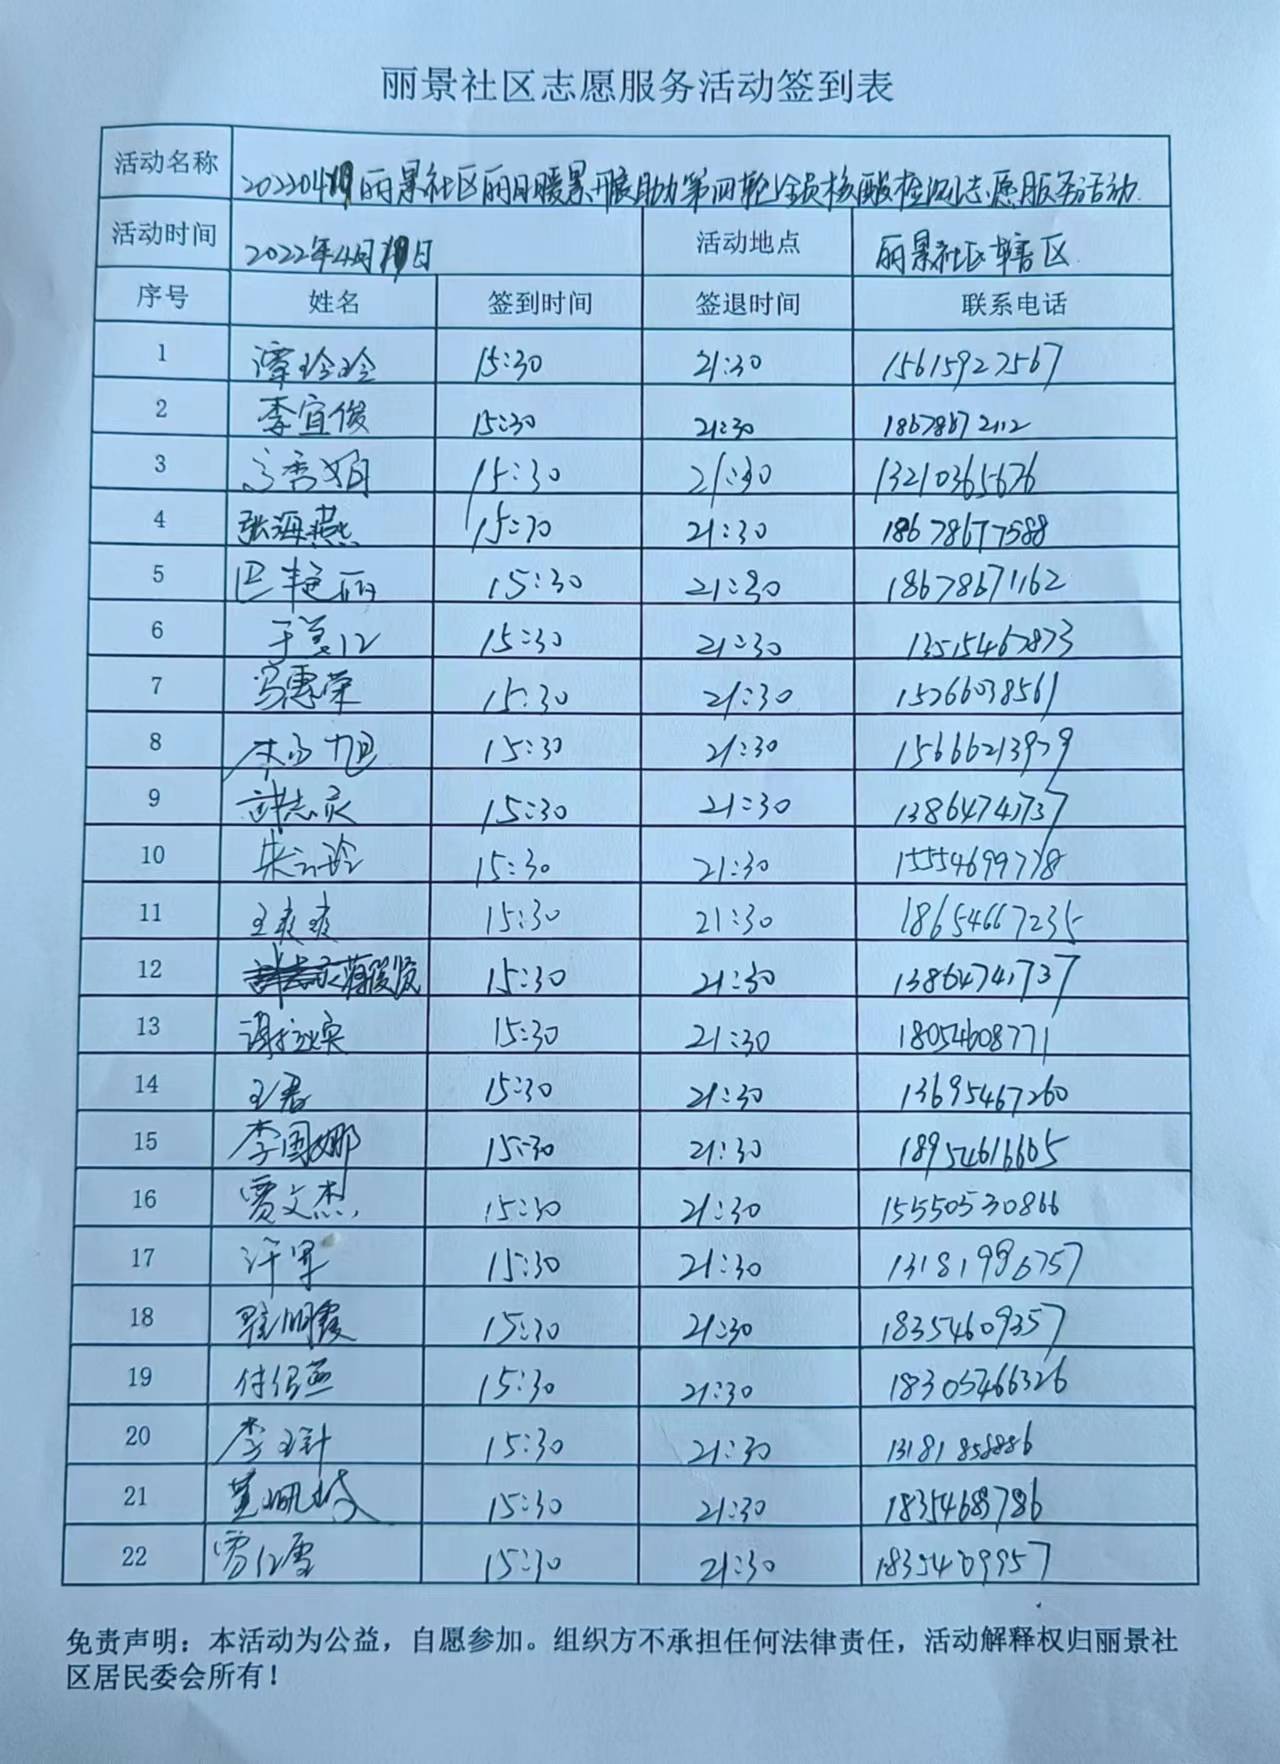 丽景社区志愿服务活动签到表
活动名称 20220419丽景社区丽日暖景开展助力第四轮全员核酸检测志愿服务活动
活动时间 2022年4月19日 活动地点 丽景社区辖区
序号 姓名 签到时间 签退时间 联系电话
1 潭玲玲 15:30 21:30 15615927567
2 李宜俊 15:30 21:30 18678672112
3 15:30 21:30 13210365676
4 张海燕 15:30 21:30 18678677588
5 巴艳丽 15:30 21:30 18678671162
6 15:30 21:30 13515467873
7 冯惠荣 15:30 21:30 15266038561
8 15:30 21:30 15666213979
9 15:30 21:30 13864741737
10 15:30 21:30 15554699778
11 王爽爽 15:30 21:30 18654667235
12 蒋俊贤 15:30 21:30 13864741737
13 15:30 21:30 18054608771
14 王君 15:30 21:30 13695467260
15 李国娜 15:30 21:30 18954616605
16 贾文杰 15:30 21:30 15550530866
17 许军 15:30 21:30 13181996757
18 程明霞 15:30 21:30 18354609357
19 15:30 21:30 18305466326
20 15:30 21:30 13181858886
21 15:30 21:30 1835468786
22 15:30 21:30 1835409957
免责声明：本活动为公益，自愿参加。组织方不承担任何法律责任，活动解释权归丽景社
区居民委会所有！